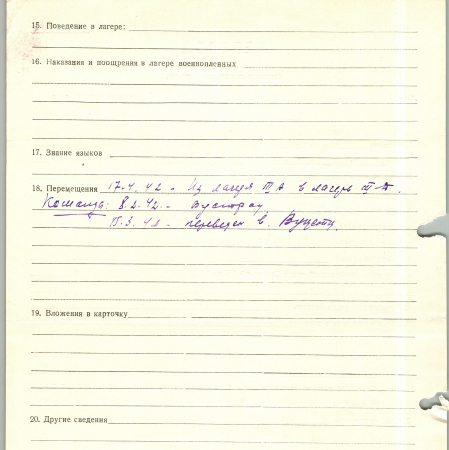 15. Поведение в лагере:
16. Наказания и поощрения в лагере военнопленных
17. Знание языков
18. Перемещения 17.4.42 - Из лагеря III А в лагерь III-Д.
Команда: 8.2.42. -
15.3.42 - переведен в.
19. Вложения в карточку
20. Другие сведения